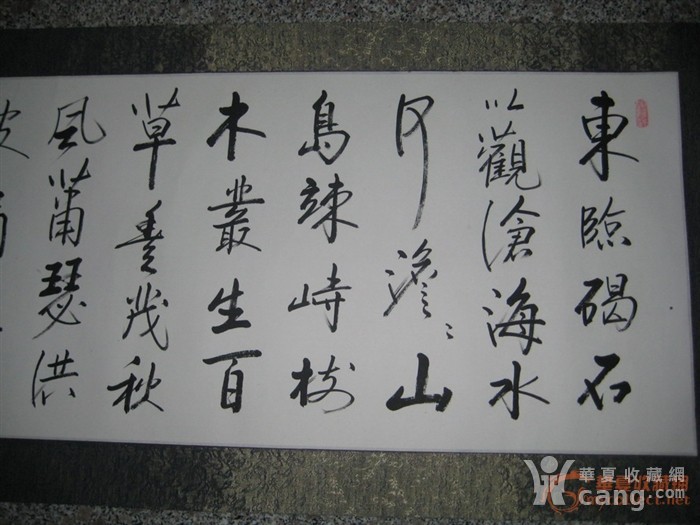 東臨碣石
以觀滄海水
何澹〻山
島竦峙樹
木叢生百
草豐茂秋
風蕭瑟洪
華夏收藏網
cang.com